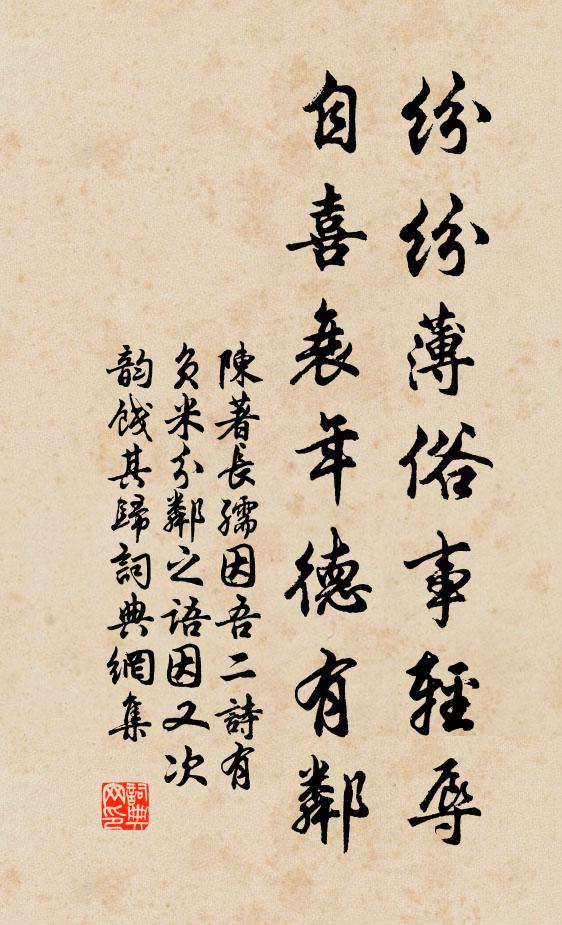 紛紛薄俗事輕辱
自喜衰年德有鄰
陳著長孺因吾二詩有
負米分鄰之語因又次
韵餞其歸詞典網集
詞典网印